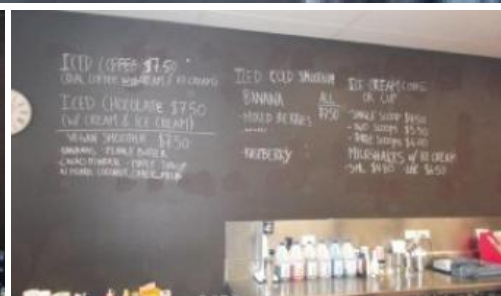 ICED COFFEE $7.50
(REAL COFFEE W/ CREAM / ICE CREAM)
ICED CHOCOLATE $7.50
(W/ CREAM & ICE CREAM)
VEGAN SMOOTHIE $7.50
BANANAS - PEANUT BUTTER
- CACAO POWDER - MAPLE SYRUP
ALMOND, COCONUT, MILK
ICED COLD SMOOTHIE
BANANA ALL
- MIXED BERRIES $7.50
- RASPBERRY
ICE CREAM CONE
OR CUP
- SINGLE SCOOP $4.50
- TWO SCOOPS $5.50
- THREE SCOOPS
MILKSHAKES W/ ICE CREAM